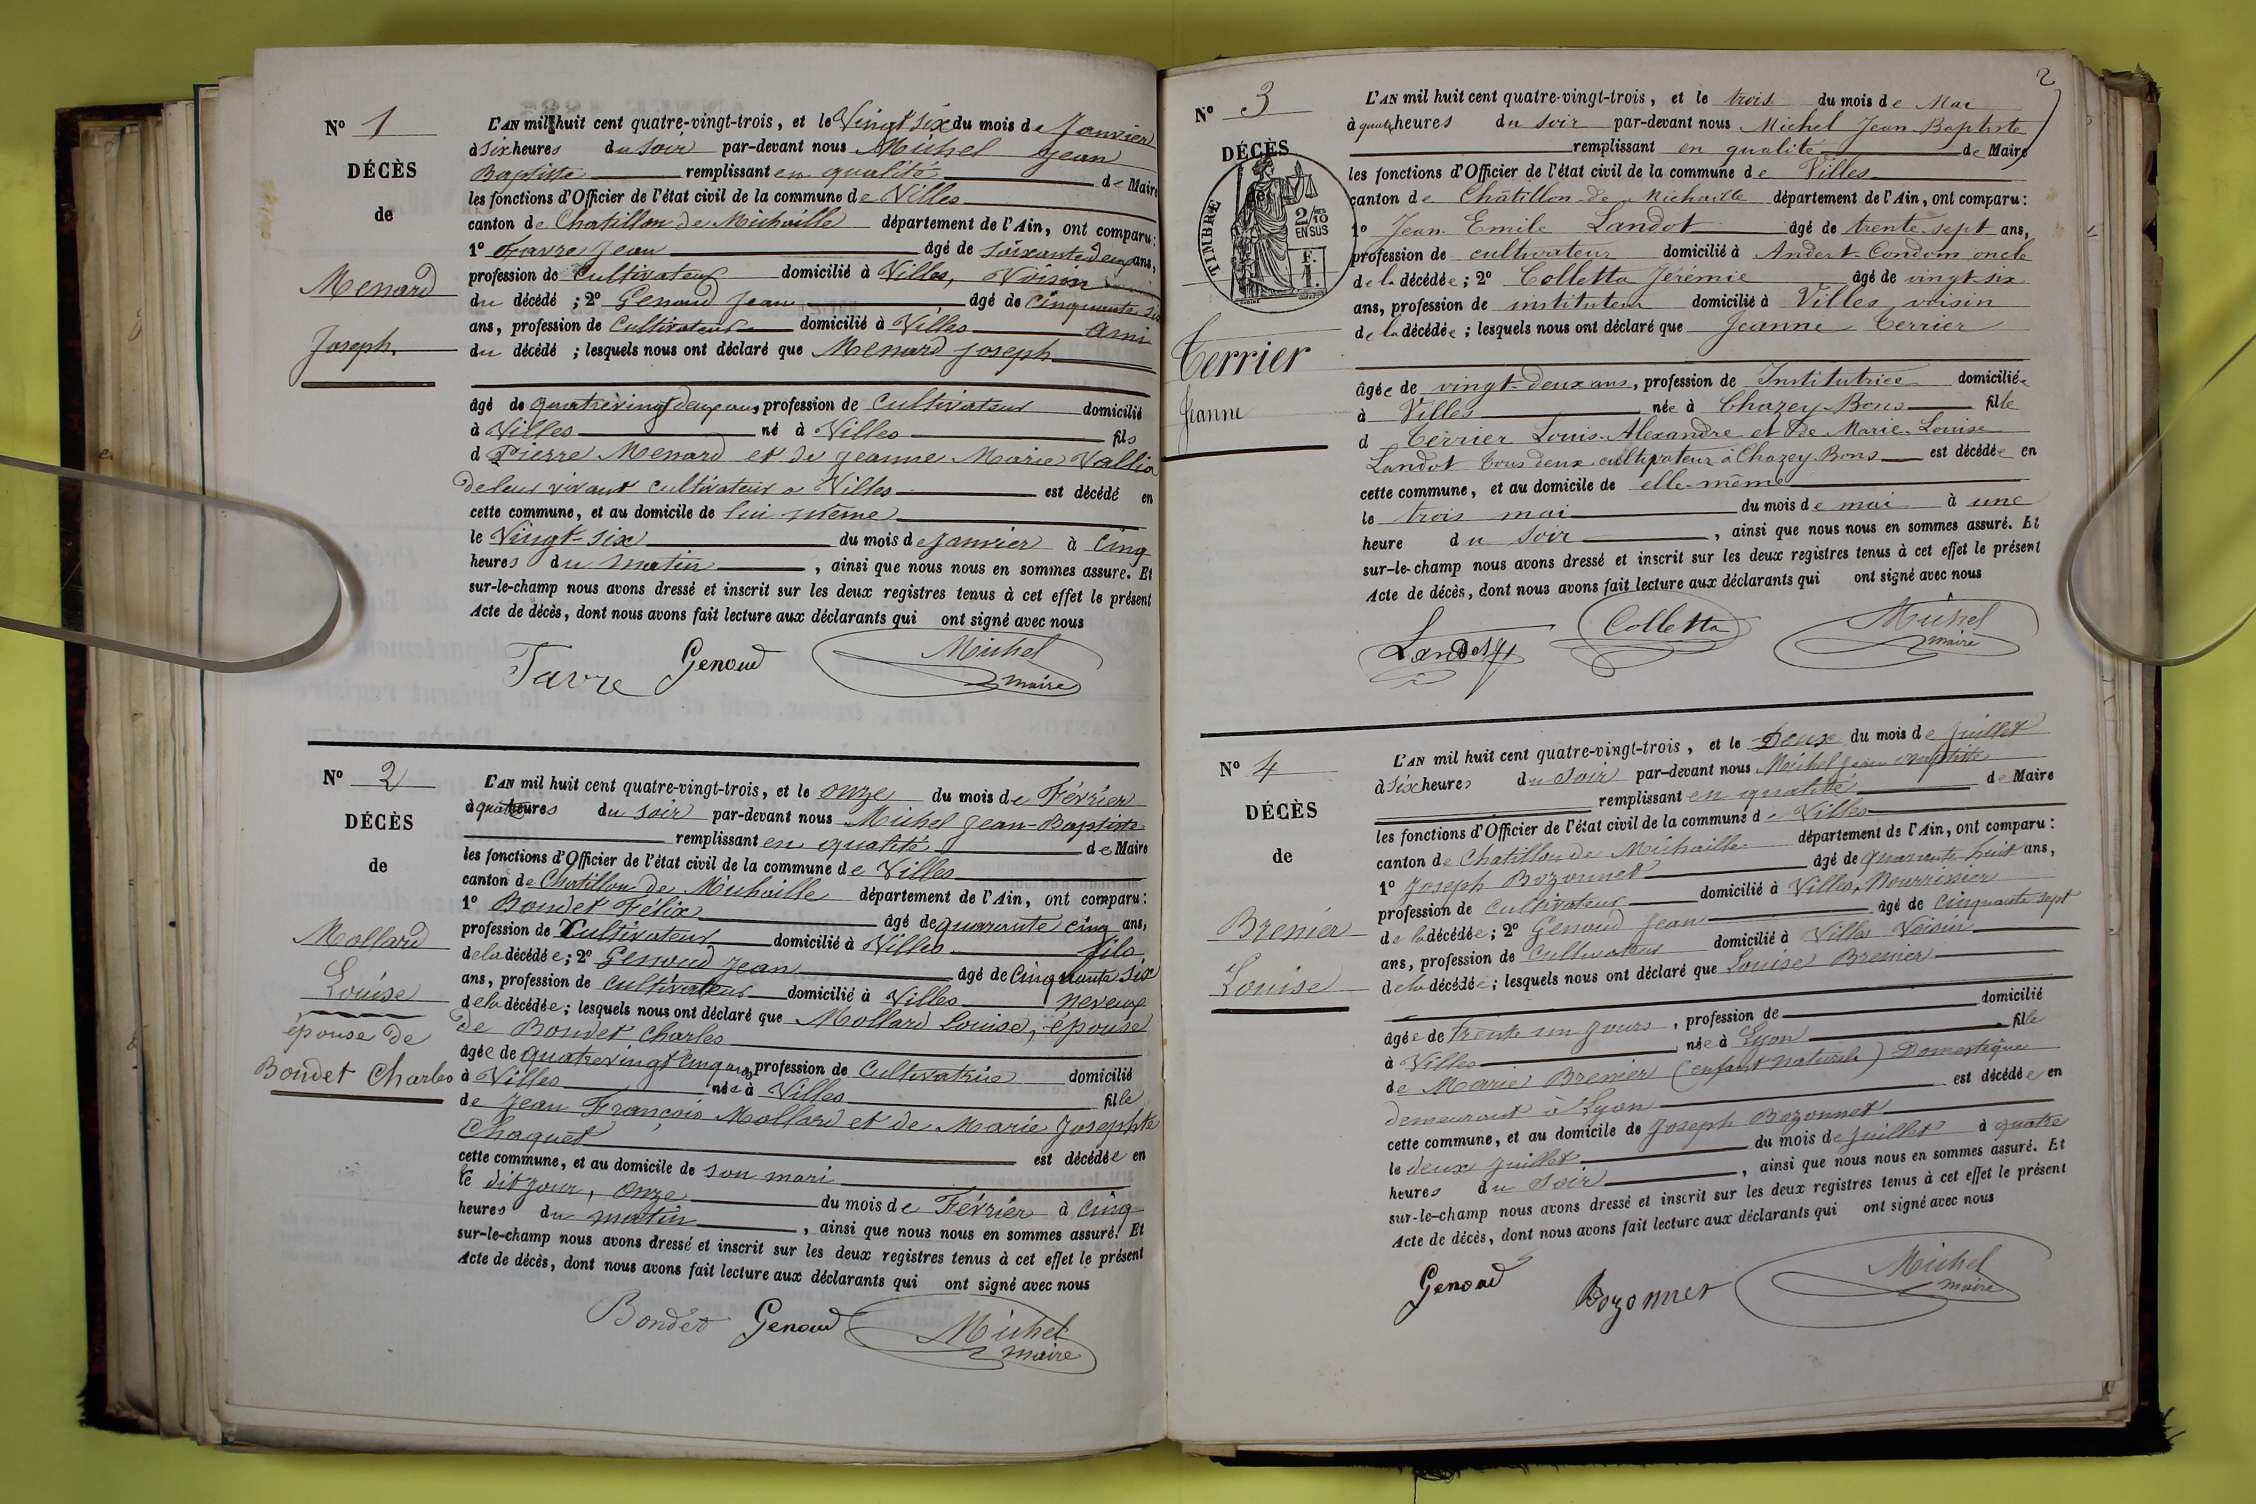 N° 1
DÉCÈS
de
Menard
Joseph.
L'AN mil huit cent quatre-vingt-trois, et le Vingt six du mois de Janvier
à six heures du soir par-devant nous Michel Jean
Baptiste remplissant en qualité de Maire
les fonctions d'Officier de l'état civil de la commune de Villes
canton de Chatillon de Michaille département de l'Ain, ont comparu :
1° Favre Jean âgé de soixante deux ans,
profession de Cultivateur domicilié à Villes, Voisin
du décédé ; 2° Genoud Jean âgé de Cinquante six
ans, profession de Cultivateur domicilié à Villes Ami
du décédé ; lesquels nous ont déclaré que Menard Joseph
âgé de quatrevingt deux ans, profession de Cultivateur domicilié
à Villes né à Villes fils
d Pierre Menard et de Jeanne Marie Vallia
de leur vivant cultivateur a Villes est décédé en
cette commune, et au domicile de lui même
le Vingt-six du mois de Janvier à cinq
heures du matin, ainsi que nous nous en sommes assuré. Et
sur-le-champ nous avons dressé et inscrit sur les deux registres tenus à cet effet le présent
Acte de décès, dont nous avons fait lecture aux déclarants qui ont signé avec nous
Favre Genoud Michel
maire
N° 2
DÉCÈS
de
Mollard
Louise
épouse de
Bondet Charles
L'AN mil huit cent quatre-vingt-trois, et le onze du mois de Février
à quatre heures du soir par-devant nous Michel Jean-Baptiste
remplissant en qualité de Maire
les fonctions d'Officier de l'état civil de la commune de Villes
canton de Chatillon de Michaille département de l'Ain, ont comparu :
1° Bondet Félix âgé de quarante cinq ans,
profession de Cultivateur domicilié à Villes fils
de la décédée ; 2° Genoud Jean âgé de Cinquante six
ans, profession de cultivateur domicilié à Villes neveux
de la décédée ; lesquels nous ont déclaré que Mollard Louise, épouse
de Bondet Charles
âgée de quatrevingt cinq ans, profession de Cultivatrice domicilié
à Villes née à Villes fille
de Jean François Mollard et de Marie Josephte
Chaquet est décédée en
cette commune, et au domicile de son mari
le dit jour, onze du mois de Février à cinq
heures du matin, ainsi que nous nous en sommes assuré. Et
sur-le-champ nous avons dressé et inscrit sur les deux registres tenus à cet effet le présent
Acte de décès, dont nous avons fait lecture aux déclarants qui ont signé avec nous
Bondet Genoud Michel
maire
2
N° 3
DÉCÈS
de
TIMBRE
2/10 EN SUS
F. 1.
Terrier
Jeanne
L'AN mil huit cent quatre-vingt-trois, et le trois du mois de Mai
à quatre heures du soir par-devant nous Michel Jean Baptiste
remplissant en qualité de Maire
les fonctions d'Officier de l'état civil de la commune de Villes
canton de Châtillon de Michaille département de l'Ain, ont comparu :
1° Jean Emile Landot âgé de trente sept ans,
profession de cultivateur domicilié à Andert-Condom oncle
de la décédée ; 2° Colletta Jérémie âgé de vingt six
ans, profession de instituteur domicilié à Villes voisin
de la décédée ; lesquels nous ont déclaré que Jeanne Terrier
âgée de vingt-deux ans, profession de Institutrice domiciliée
à Villes née à Chazey-Bons fille
d Terrier Louis-Alexandre et de Marie-Louise
Landot tous deux cultivateur à Chazey-Bons est décédée en
cette commune, et au domicile de elle-même
le trois mai du mois de mai à une
heure du soir, ainsi que nous nous en sommes assuré. Et
sur-le-champ nous avons dressé et inscrit sur les deux registres tenus à cet effet le présent
Acte de décès, dont nous avons fait lecture aux déclarants qui ont signé avec nous
Landot Colletta Michel
maire
N° 4
DÉCÈS
de
Brenier
Louise
L'AN mil huit cent quatre-vingt-trois, et le Deux du mois de Juillet
à six heures du soir par-devant nous Michel Jean Baptiste
remplissant en qualité de Maire
les fonctions d'Officier de l'état civil de la commune de Villes
canton de Chatillon de Michaille département de l'Ain, ont comparu :
1° Joseph Bozonnet âgé de quarante huit ans,
profession de cultivateur domicilié à Villes, Nourricier
de la décédée ; 2° Genoud Jean âgé de Cinquante sept
ans, profession de Cultivateur domicilié à Villes Voisin
de la décédée ; lesquels nous ont déclaré que Louise Brenier
âgée de trente un jours, profession de domicilié
à Villes née à Lyon fille
de Marie Brenier (enfant naturele) Domestique
demeurant à Lyon est décédée en
cette commune, et au domicile de Joseph Bozonnet
le deux juillet du mois de juillet à quatre
heures du soir, ainsi que nous nous en sommes assuré. Et
sur-le-champ nous avons dressé et inscrit sur les deux registres tenus à cet effet le présent
Acte de décès, dont nous avons fait lecture aux déclarants qui ont signé avec nous
Genoud Bozonnet Michel
maire